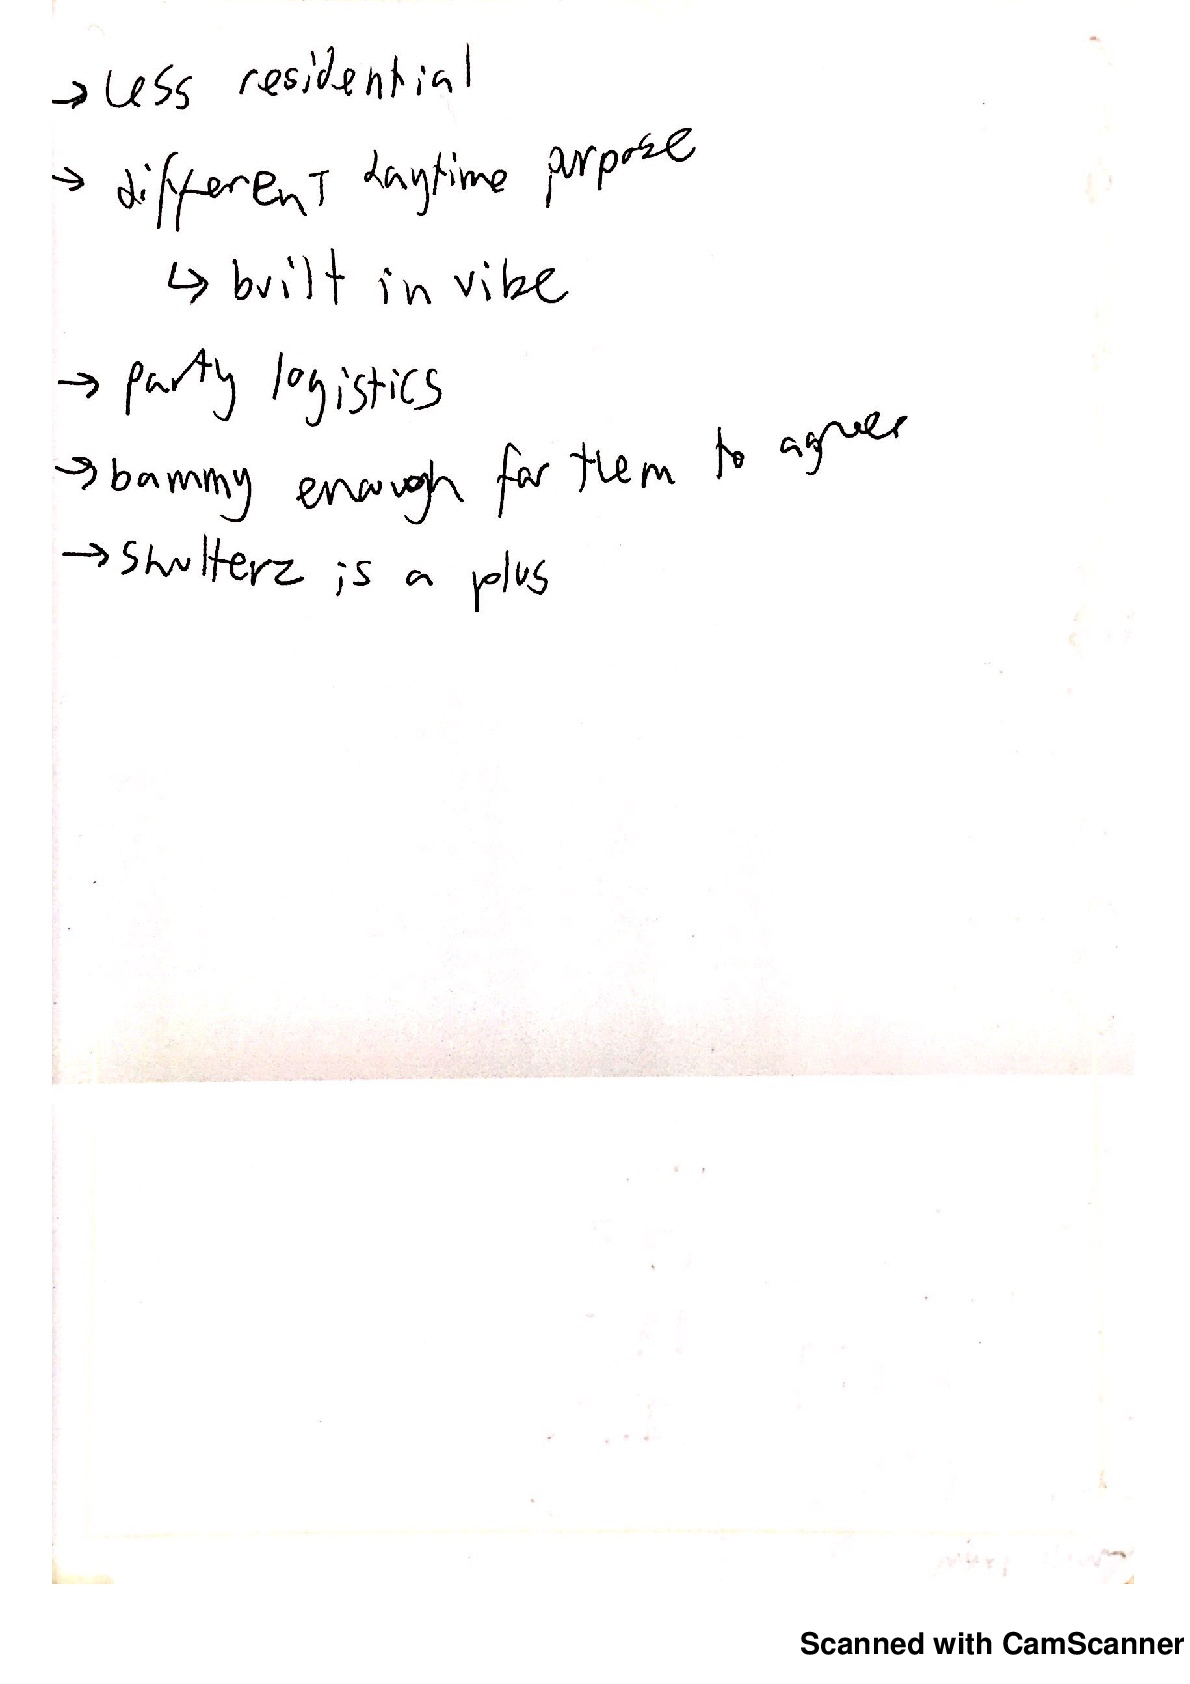 → Less residential
→ different daytime purpose
↳ built in vibe
→ party logistics
→ bammy enough for them to agree
→ Shulterz is a plus
Scanned with CamScanner